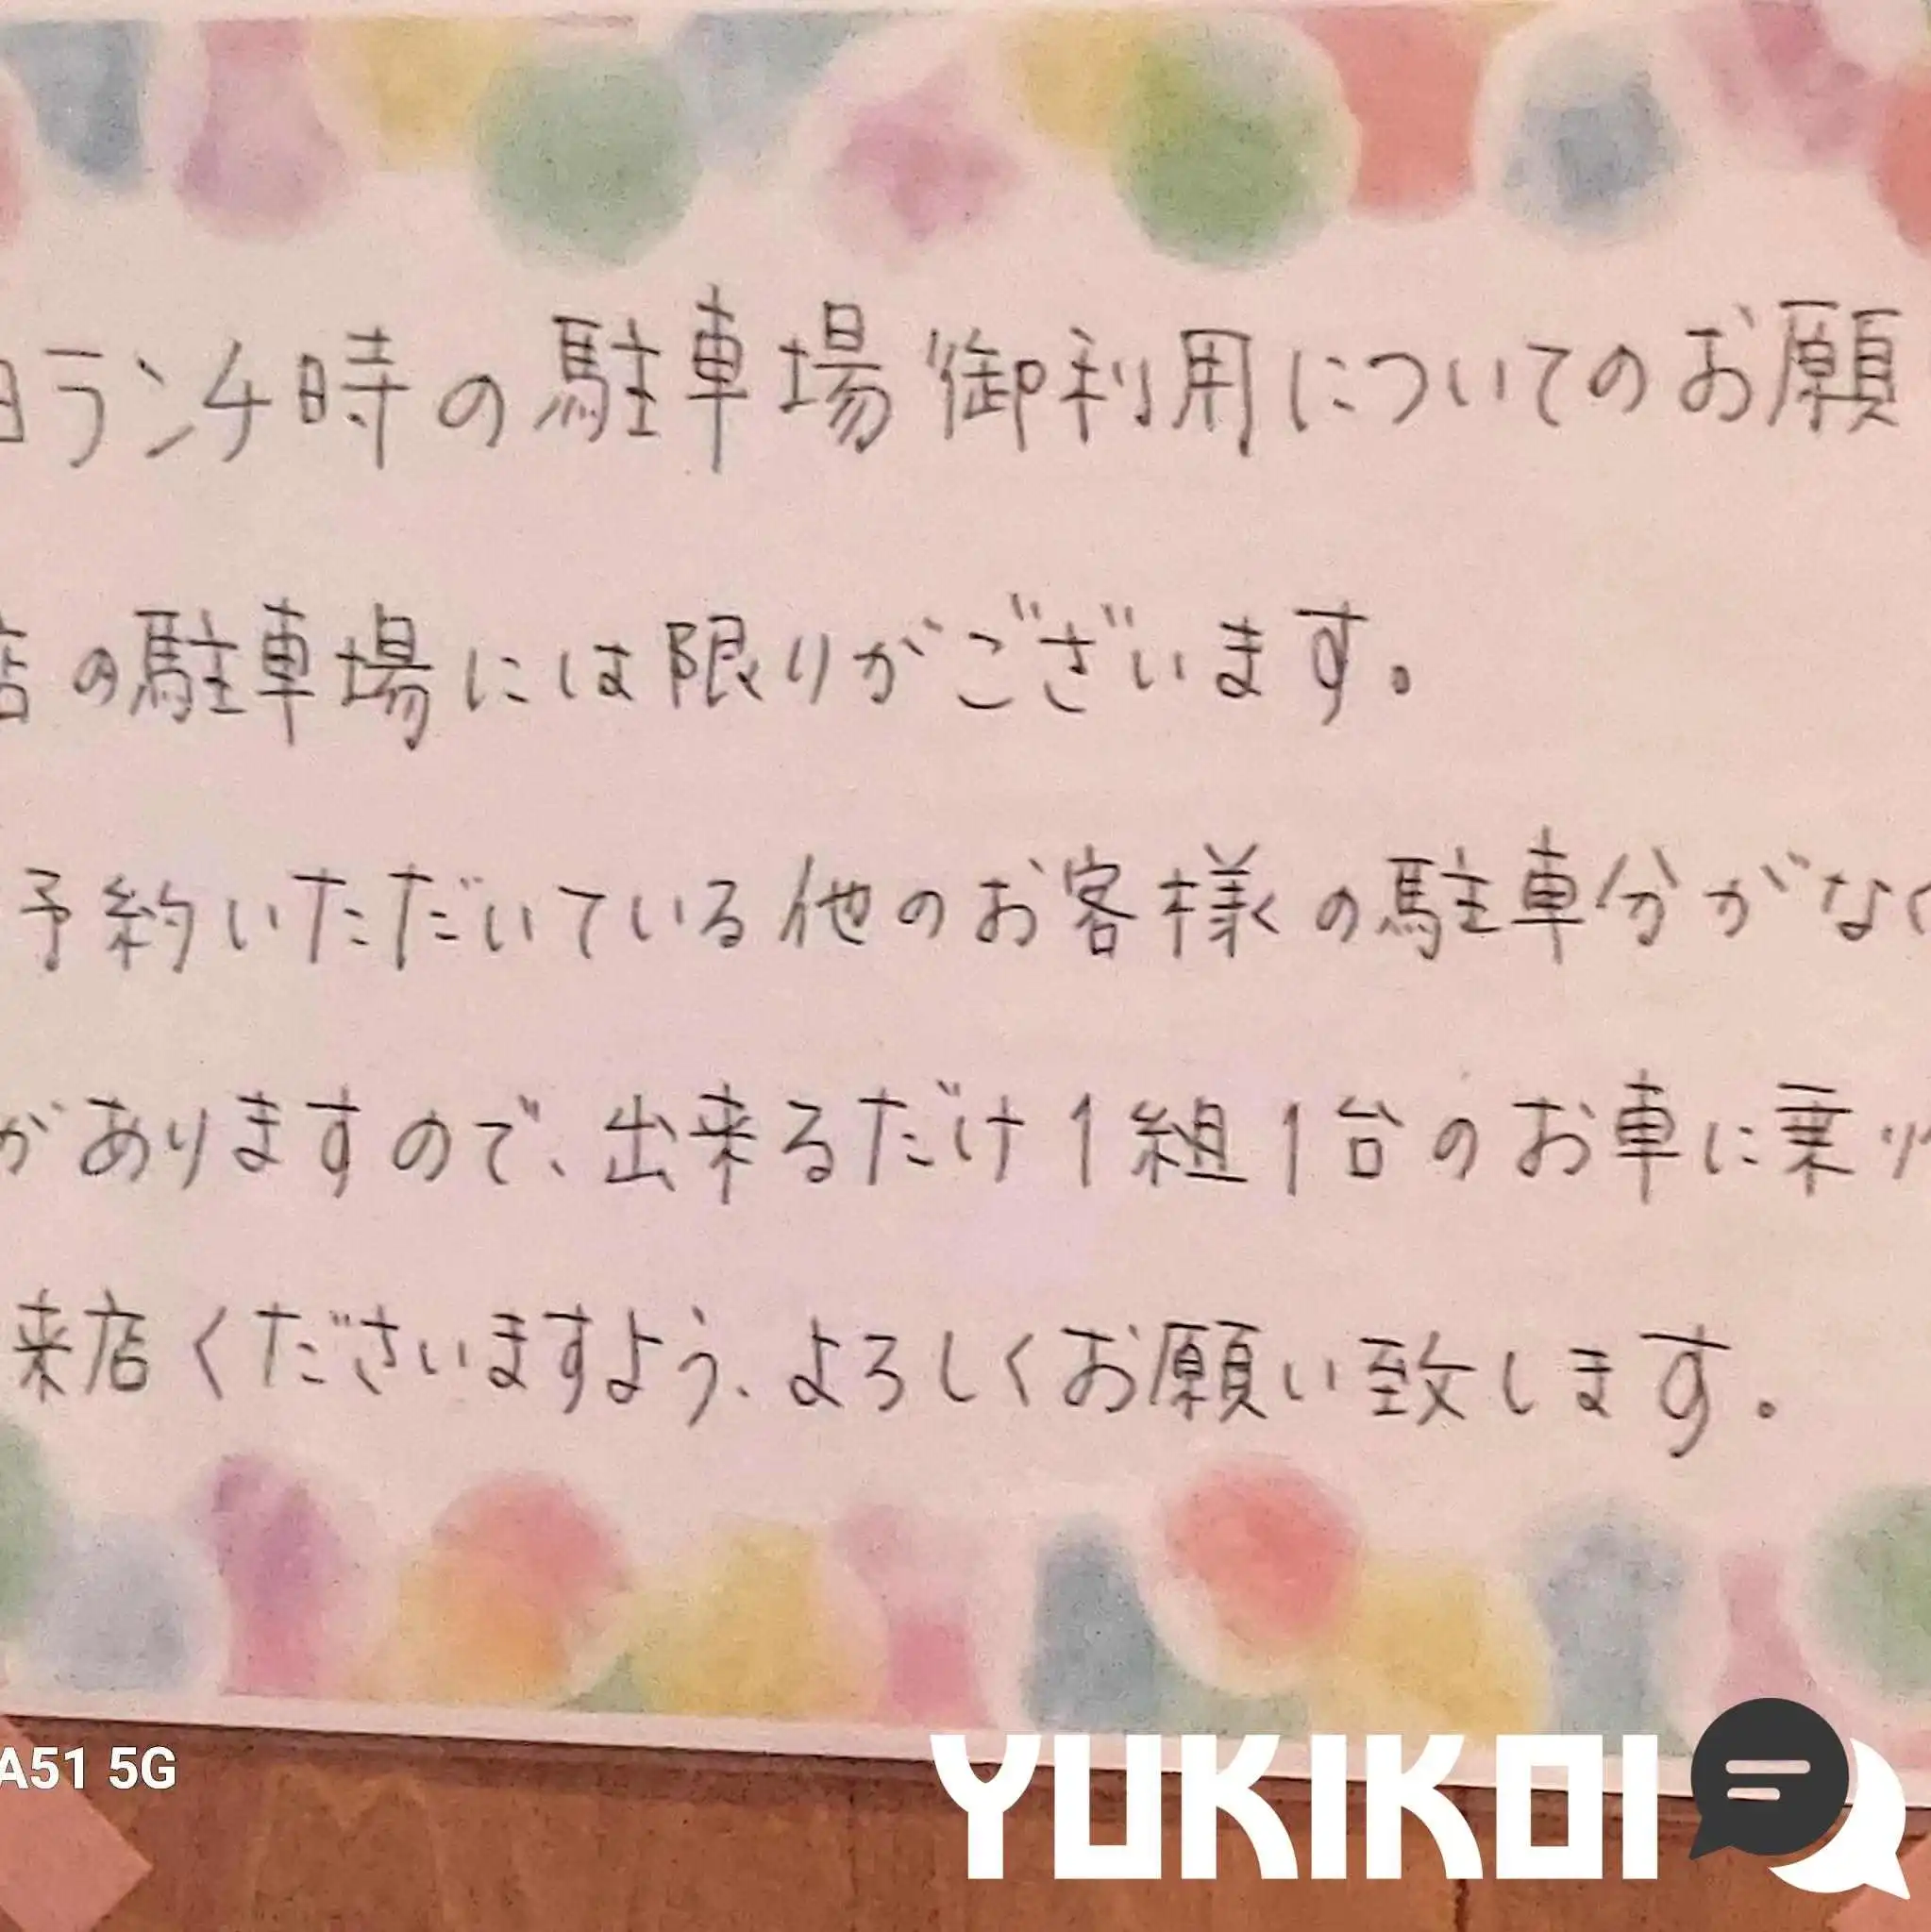 日ランチ時の駐車場御利用についてのお願
店の駐車場には限りがございます。
予約いただいている他のお客様の駐車分がなく
がありますので、出来るだけ1組1台のお車に乗り
来店くださいますよう、よろしくお願い致します。
A51 5G
YUKIKOI